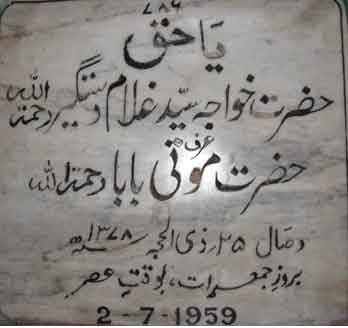 ۷۸۶
یا حق
حضرت خواجہ سیّد غلام دستگیر رحمتہ اللہ
عرف
حضرت موتی بابا رحمتہ اللہ
وصال ۲۵؍ ذی الحجہ ۱۳۷۸ھ
بروز جمعرات، بوقتِ عصر
2-7-1959